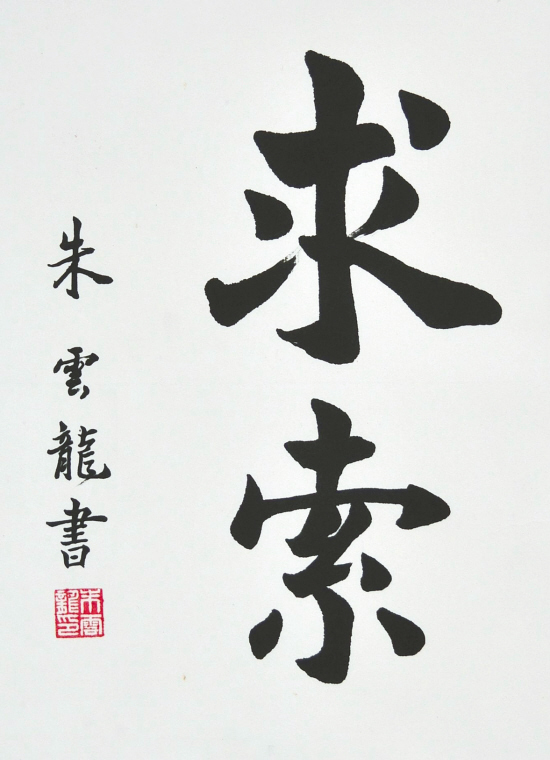 求索
朱雲龍書
朱雲龍印